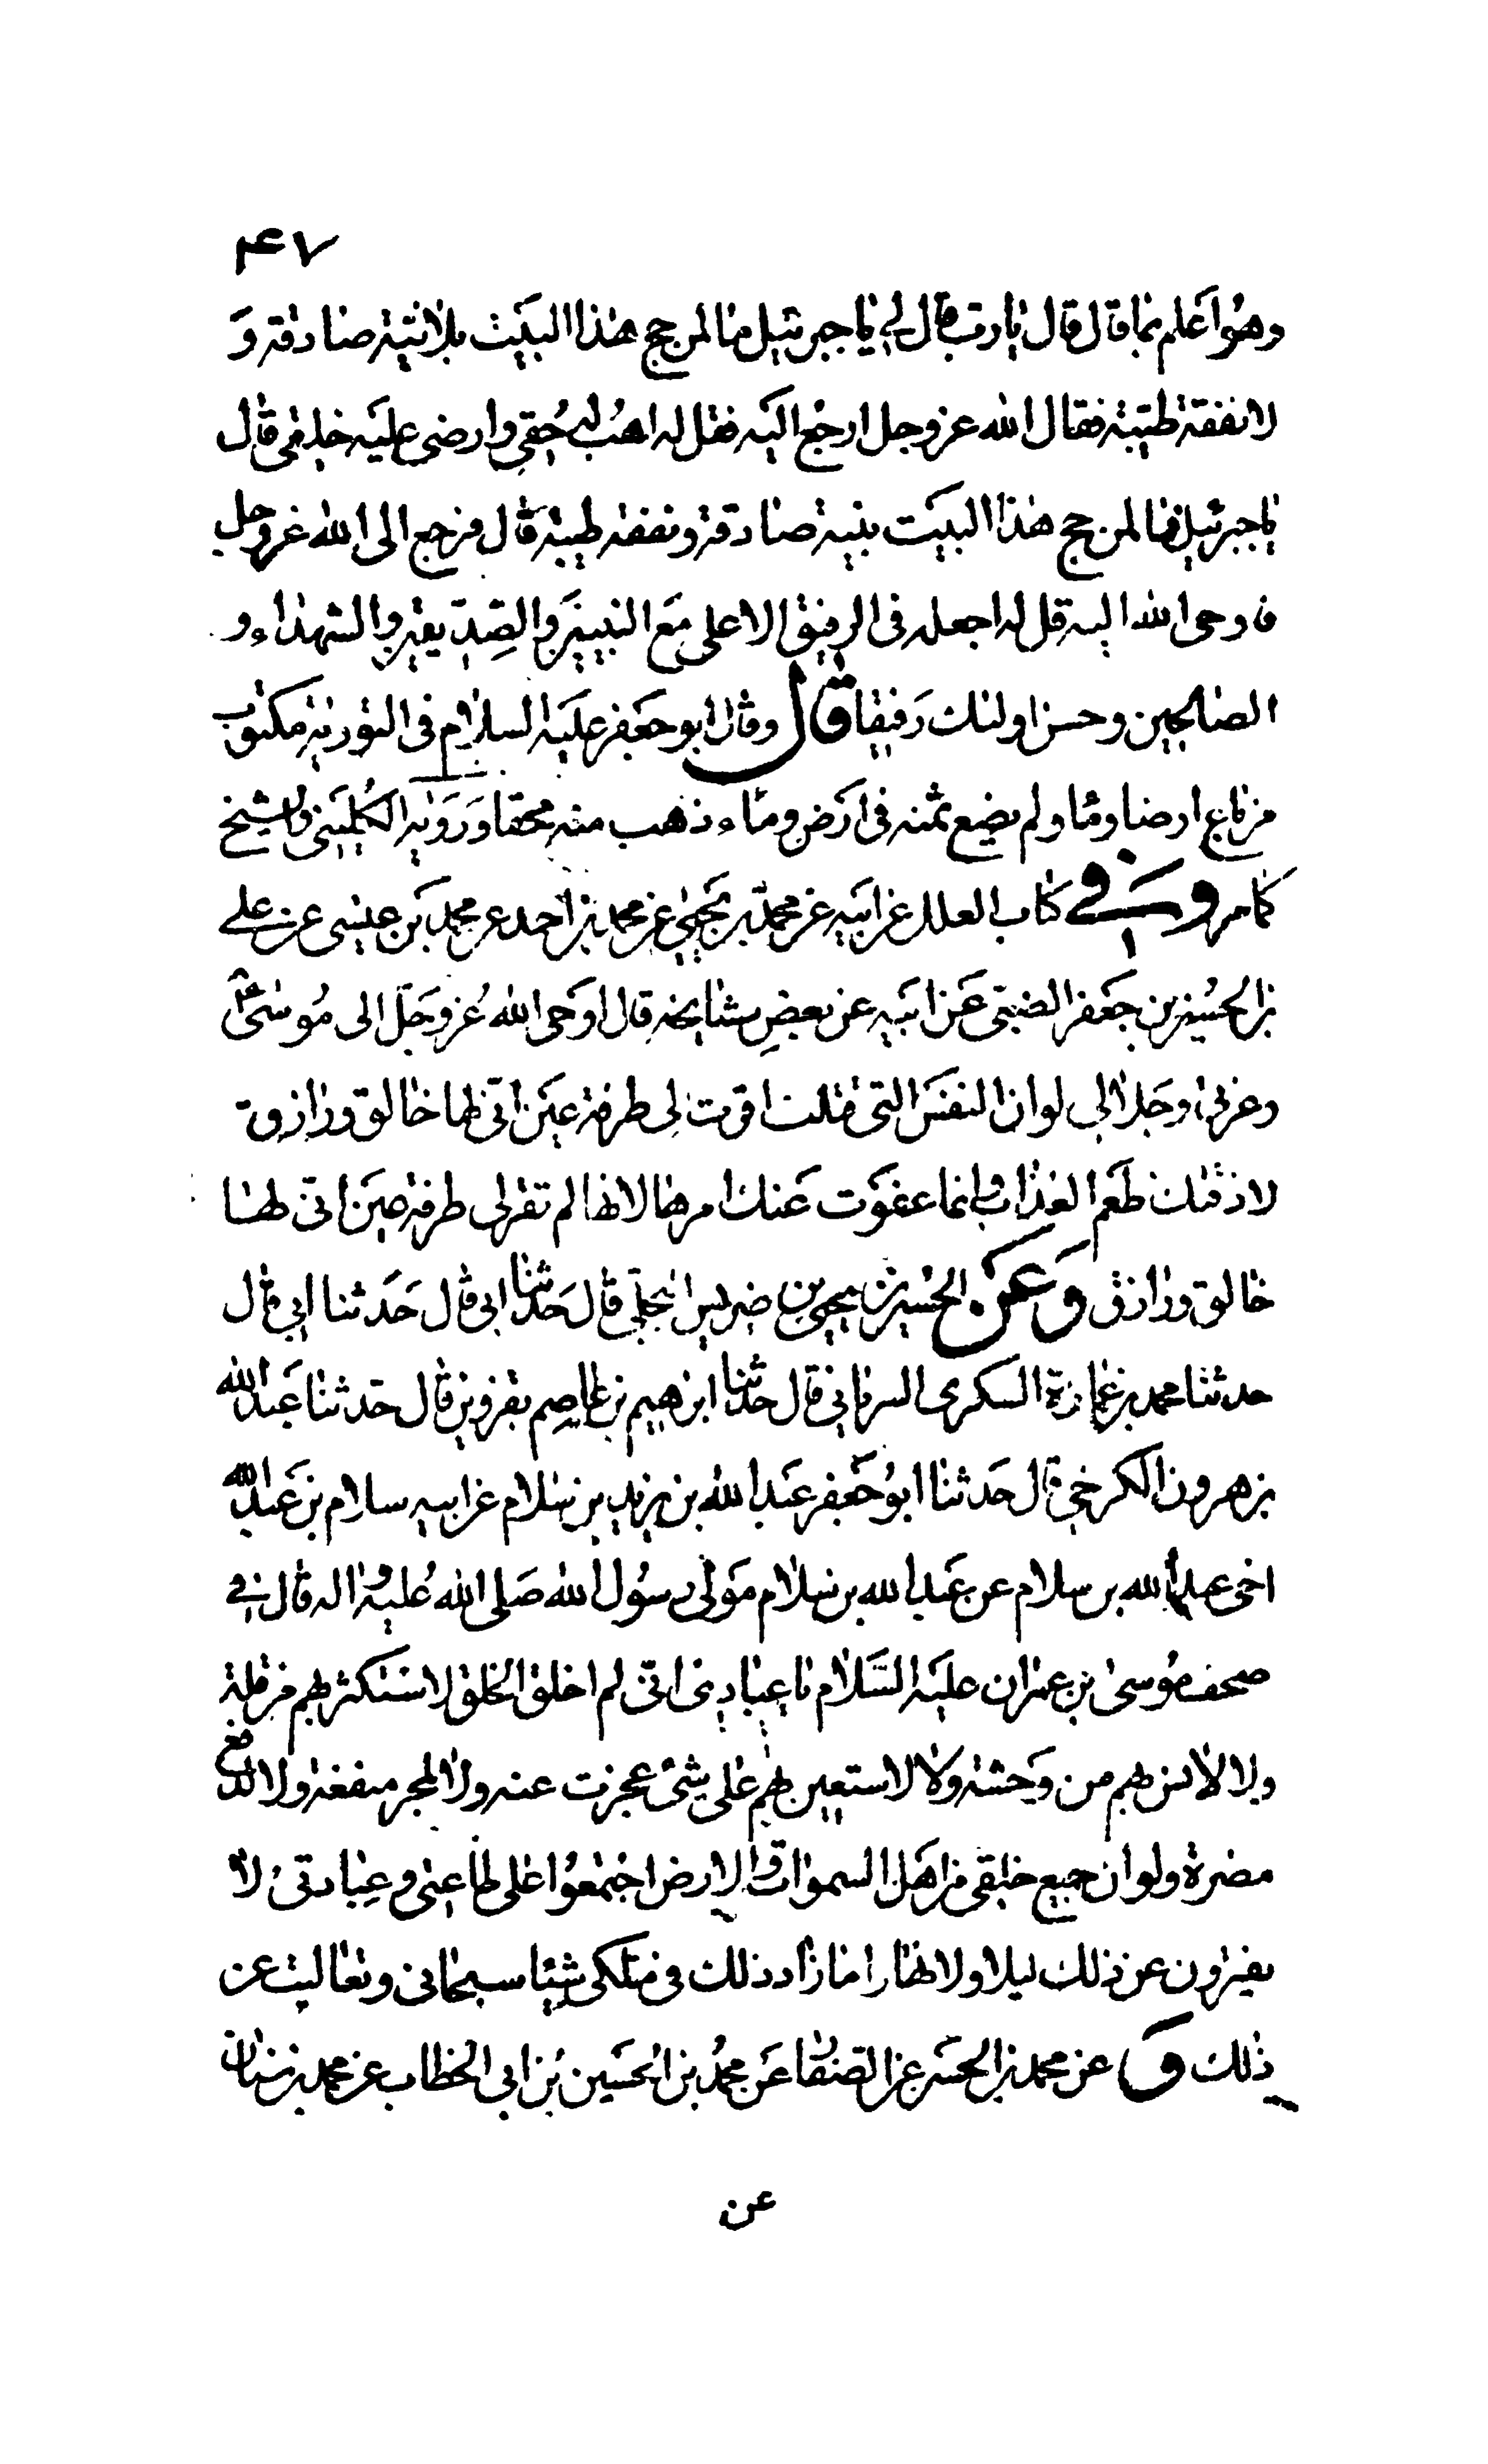 ۴۷
وهو اعلم بما قال قال يا رب قال لي يا جبرئيل ما لمن حج هذا البيت بلا نية صادقة و
لا نفقة طيبة فقال الله عز وجل ارجع اليه فقل له اهب له حقي وارضي عليه خلقي قال
يا جبرئيل فما لمن حج هذا البيت بنية صادقة ونفقة طيبة قال فرجع الى الله عز وجل
فاوحى الله اليه قل له اجعله فى الرفيق الاعلى مع النبيين والصديقين والشهداء و
الصالحين وحسن اولئك رفيقا قال وقال ابو جعفر عليه السلام فى التورية مكتوب
من باع ارضا وماء ولم يضع ثمنه فى ارض وماء ذهب منه محقا ورواه الكليني والشيخ
كما مر وفي كتاب العلل عن ابيه عن محمد بن يحيى عن محمد بن احمد عن محمد بن عيسى عن علي
بن الحسين بن جعفر الضبى عن ابيه عن بعض مشايخه قال اوحى الله عز وجل الى موسى ع
وعزتي وجلالي لو ان النفس التى قتلت اقرت لى طرفة عين انى لها خالق ورازق
لاذقتك طعم العذاب وانما عفوت عنك امرها لانها لم تقر لى طرفة عين انى لها
خالق ورازق وعن الحسين بن يحيى بن ضريس البجلي قال حدثنا ابى قال حدثنا ابي قال
حدثنا محمد بن عمارة السكرى السرياني قال حدثنا ابرهيم بن عاصم بقزوين قال حدثنا عبد الله
بن هرون الكرخي قال حدثنا ابو جعفر عبد الله بن يزيد بن سلام عن ابيه سلام بن عبد الله
اخى عبد الله بن سلام عن عبد الله بن سلام مولى رسول الله صلى الله عليه واله قال في
صحف موسى بن عمران عليه السلام يا عبادى انى لم اخلق الخلق لاستكثر بهم من قلة
ولا لانس بهم من وحشة ولا لاستعين بهم على شئ عجزت عنه ولا لجر منفعة ولا لدفع
مضرة ولو ان جميع خلقى من اهل السموات والارض اجتمعوا على طاعتى وعبادتى لا
يفترون عن ذلك ليلا ولا نهارا ما زاد ذلك في ملكى شيئا سبحانى وتعاليت عن
ذلك و عن محمد بن الحسن عن الصفار عن محمد بن الحسين بن ابى الخطاب عن محمد بن سنان
عن